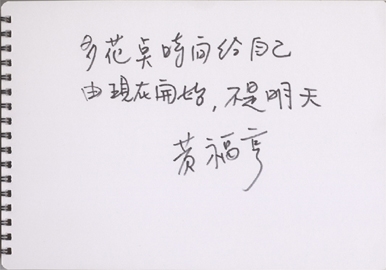 多花點時間給自己
由現在開始，不是明天
黃福亨